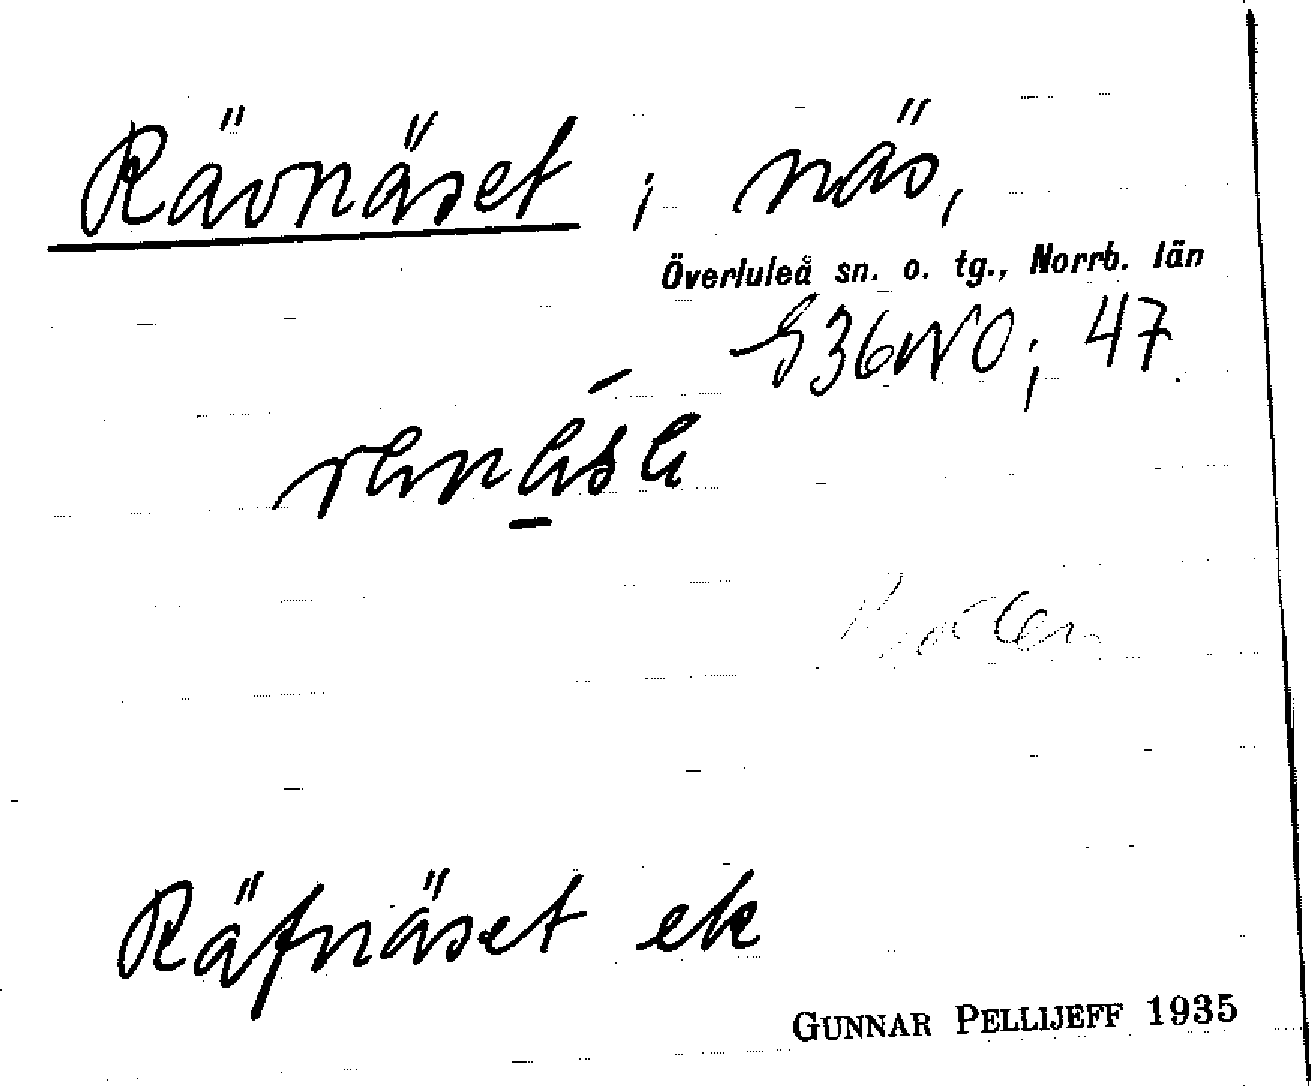 Rävnäset ; näs,
Överluleå sn. o. tg., Norrb. län
S36NO; 47
Räfnäset ek
GUNNAR PELLIJEFF 1935